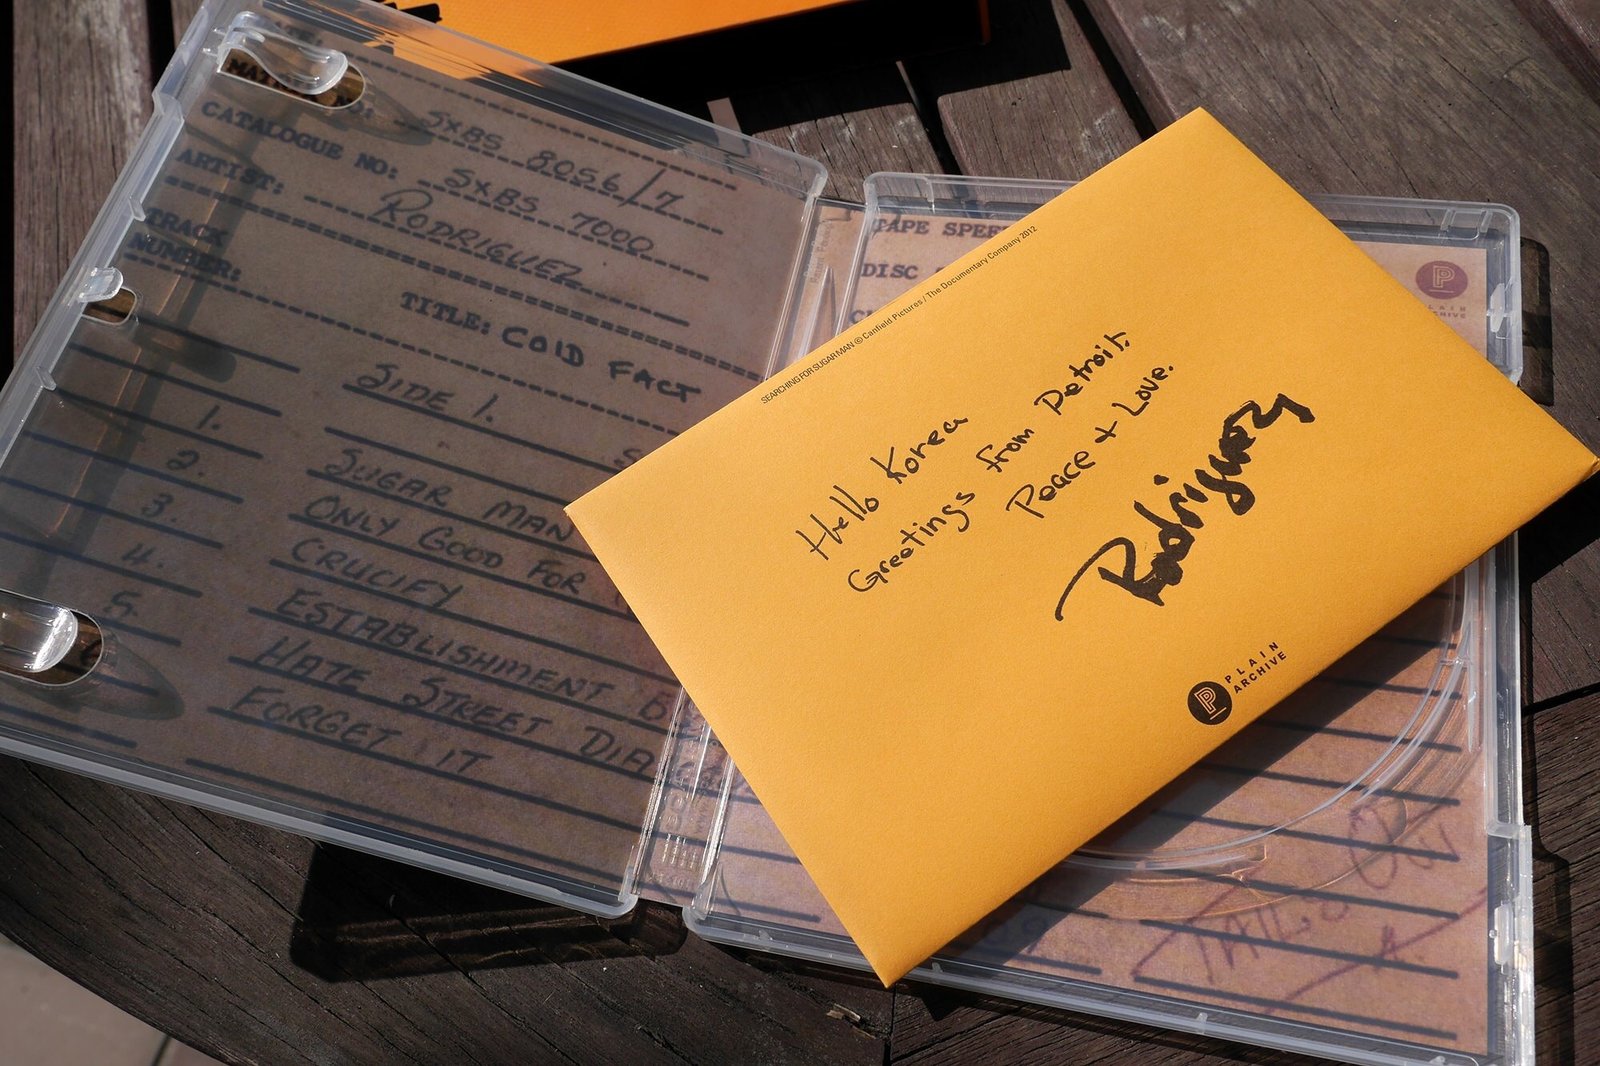 SXBS 8056/7
CATALOGUE NO: SXBS 7000
ARTIST: RODRIGUEZ
TRACK
NUMBER:
TITLE: COLD FACT
SIDE 1.
1. SUGAR MAN
2. ONLY GOOD FOR
3. CRUCIFY
4. ESTABLISHMENT B
5. HATE STREET DIA
6 FORGET IT
TAPE SPEE
DISC
PLAIN
ARCHIVE
SEARCHING FOR SUGAR MAN © Canfield Pictures / The Documentary Company 2012
Hello Korea
Greetings from Detroit.
Peace & Love.
Rodriguez
PLAIN
ARCHIVE
TAILS OUT